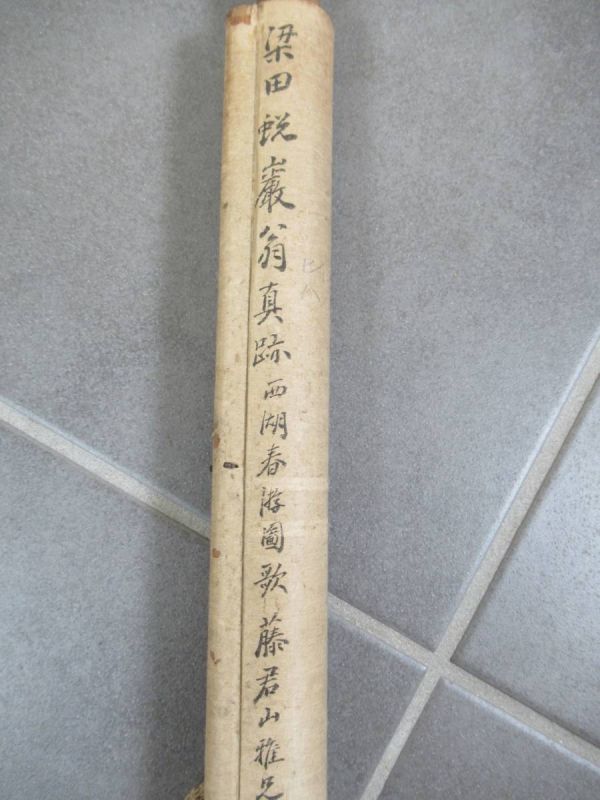 梁田蛻巖翁真跡西湖春游圖歌藤君山雅兄